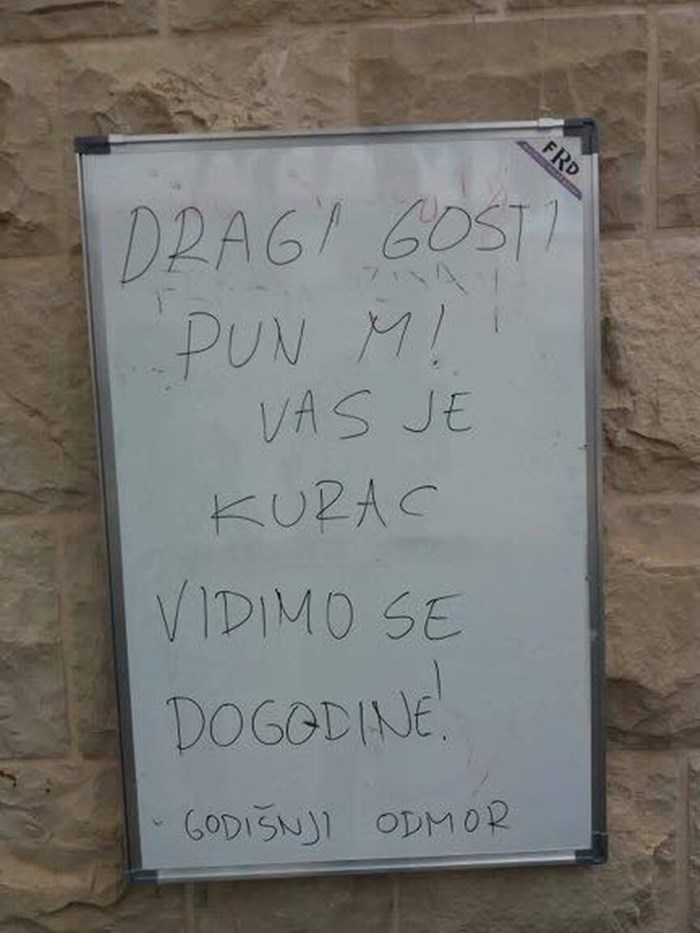 FRD
DRAGI GOSTI
PUN M!
VAS JE
KURAC
VIDIMO SE
DOGODINE!
GODIŠNJI ODMOR